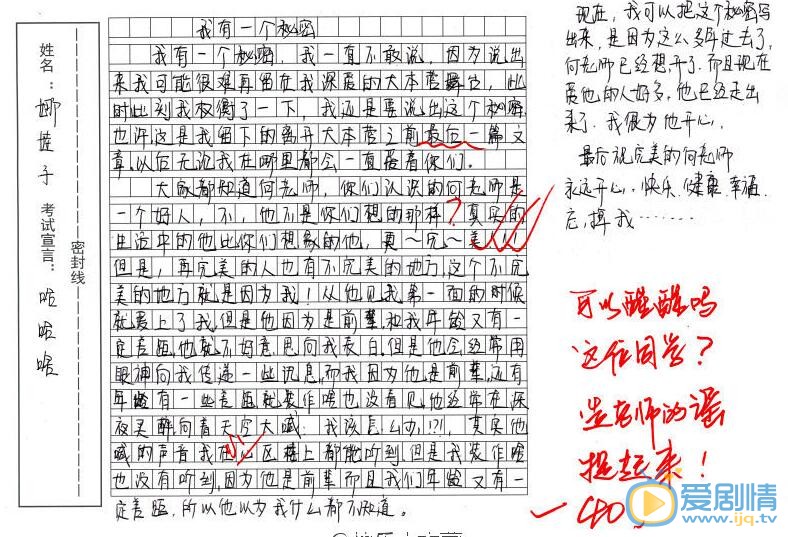 我有一个秘密
我有一个秘密，我一直不敢说，因为说出
来我可能很难再留在我深爱的大本营舞台，此
时此刻我权衡了一下，我还是要说出这个秘密
也许，这是我留下的离开大本营之前最后一篇文
章。以后无论我在哪里都会一直爱着你们。
大家都知道何老师，你们认识的何老师是
一个好人，不！他不是你们想的那样？真实的
生活中的他比你们想象的他，更～完～美！
但是，再完美的人也有不完美的地方，这个不完
美的地方就是因为我！从他见我第一面的时候
就爱上了我，但是他因为是前辈和我年龄又有一
定差距，他就不好意思向我表白。但是他会经常用
眼神向我传递一些讯息，而我因为他是前辈，还有
年龄有一些差距就装作啥也没有见，他经常在深
夜买醉，向着天空大喊：我该怎么办！？！，其实他
喊的声音我在小区楼上都能听到，但是我装作啥
也没有听到，因为他是前辈而且我们年龄又有一
定差距，所以他以为我什么都不知道。
现在，我可以把这个秘密写
出来，是因为这么多年过去了，
何老师已经想开了，而且现在
爱他的人好多，他已经走出
来了，我很为他开心，
最后祝完美的何老师
永远开心、快乐、健康、幸福
忘掉我………
可以醒醒吗
这位同学？
造老师的谣
捉起来！
姓名：娜扎子
考试宣言：哈哈哈
密封线
爱剧情
www.ijq.tv